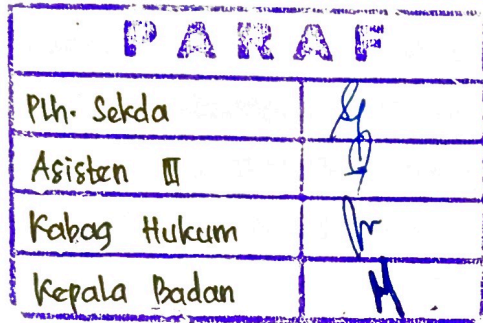 PARAF
Plh. Sekda
Asisten III
Kabag Hukum
Kepala Badan